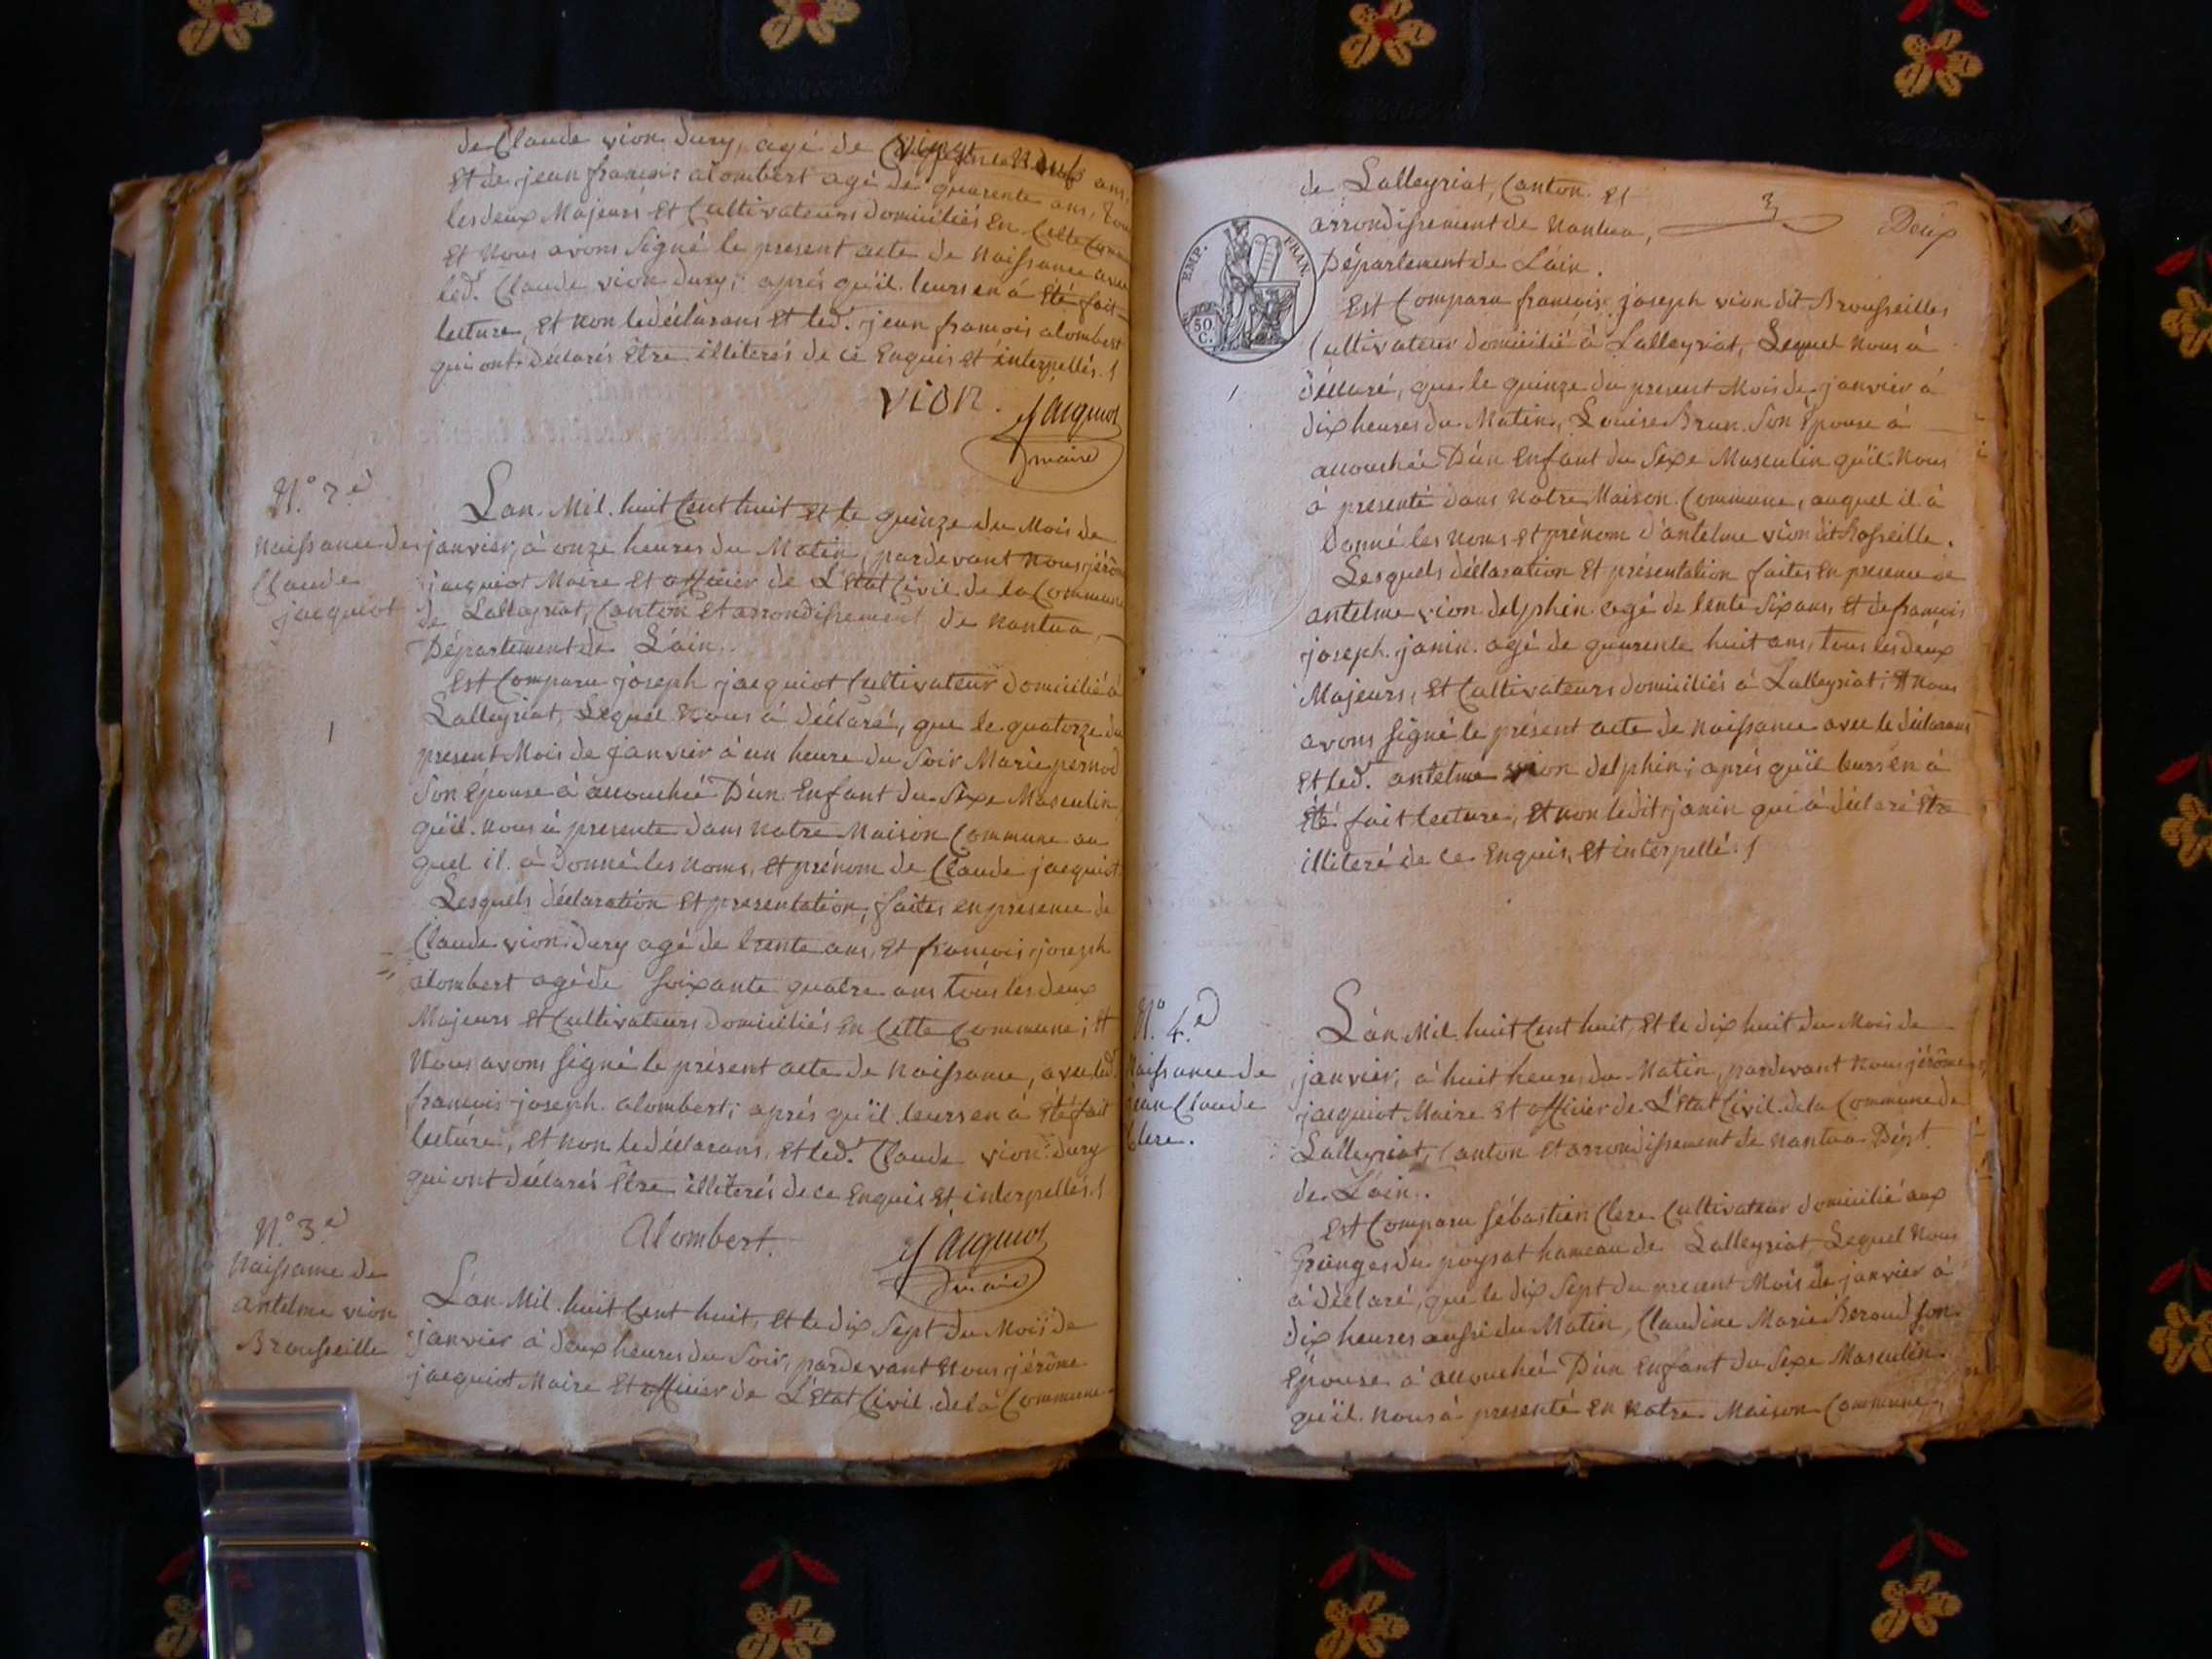 de Claude vion dury, agé de vingt neuf ans,
Et de jean françois alombert agé de quarente ans, tous
les deux Majeurs Et Cultivateurs domiciliés En Cette Comm
Et Nous avons Signé le present acte de Naissance avec
led.t Claude vion dury; après qu'il leurs en á Eté fait
lecture, Et non le déclarans Et led.t jean françois alombert
qui ont déclarés Être illiterés de ce Enquis Et interpellés./
vion. Jacquiot
maire
N.o 2.e
Naissance de
Claude
jacquiot
Lan Mil huit Cent huit Et le quinze du Mois de
janvier, á onze heures du Matin, pardevant Nous jérôme
jacquiot Maire Et officier de L'Etat Civil de la Commune
de Lalleyriat, Canton Et arrondissement de Nantua,
Département de L'ain.
Est Comparu joseph jacquiot Cultivateur domicilié á
Lalleyriat, Lequel Nous á déclaré, que le quatorze du
present Mois de janvier á un heure du Soir Marie pernod
Son Épouse á accouchée D'un Enfant du Sexe Masculin
qu'il Nous á presente dans Notre Maison Commune au
quel il á Donné les Noms, Et prénom de Claude jacquiot.
Lesquels déclaration Et presentation, faites en presence de
Claude vion dury agé de trente ans, Et françois joseph
alombert agé de soixante quatre ans tous les deux
Majeurs Et Cultivateurs domiciliés En Cette Commune; Et
Nous avons Signé le présent acte de Naissance, avec led.t
françois joseph alombert; après qu'il leurs en á Eté fait
lecture, Et Non le déclarans, Et led.t Claude vion dury
qui ont déclarés Être illiterés de ce Enquis Et interpellés./
Alombert. Jacquiot
maire
N.o 3.e
Naissance de
antelme vion
Brousseille
L'an Mil huit Cent huit, Et le dix Sept du Mois de
janvier á deux heures du Soir, pardevant Nous jérôme
jacquiot Maire Et officier de L'Etat Civil de la Commune
de Lalleyriat, Canton Et
arrondissement de Nantua, 3 Deux
Département de L'ain.
EMP. FRAN.
50 C.
Est Comparu françois joseph vion dit Brousseilles
Cultivateur domicilié á Lalleyriat, Lequel Nous á
déclaré, que le quinze du present Mois de janvier á
dix heures du Matin, Louise Brun Son Épouse á
accouchée D'un Enfant du Sexe Masculin qu'il Nous
á presenté dans Notre Maison Commune, auquel il á
Donné les Noms et prénom d'antelme vion dit Rosseille.
Lesquels déclaration Et présentation faites En presence de
antelme vion delphin agé de trente Six ans, Et de françois
joseph janin agé de quarente huit ans, tous les deux
Majeurs, Et Cultivateurs domiciliés á Lalleyriat; Et Nous
avons signé le présent acte de Naissance avec le déclarans
Et led.t antelme vion delphin; après qu'il leurs en á
Eté fait lecture, Et non ledit janin qui á déclaré Etre
illiteré de ce Enquis, Et interpellé./
N.o 4.e
Naissance de
jean Claude
Clerc.
L'an Mil huit Cent huit, Et le dix huit du Mois de
janvier, á huit heures du Matin, pardevant Nous jérôme
jacquiot Maire Et officier de L'Etat Civil de la Commune de
Lalleyriat, Canton Et arrondissement de Nantua Dépt
de L'ain.
Est Comparu Sébastien Clerc Cultivateur domicilié aux
Granges du poysat hameau de Lalleyriat, Lequel Nous
á déclaré, que le dix Sept du present Mois de janvier á
dix heures aussi du Matin, Claudine Marie Beroud Son
Épouse á accouchée D'un Enfant du Sexe Masculin
qu'il Nous á presenté En Notre Maison Commune,